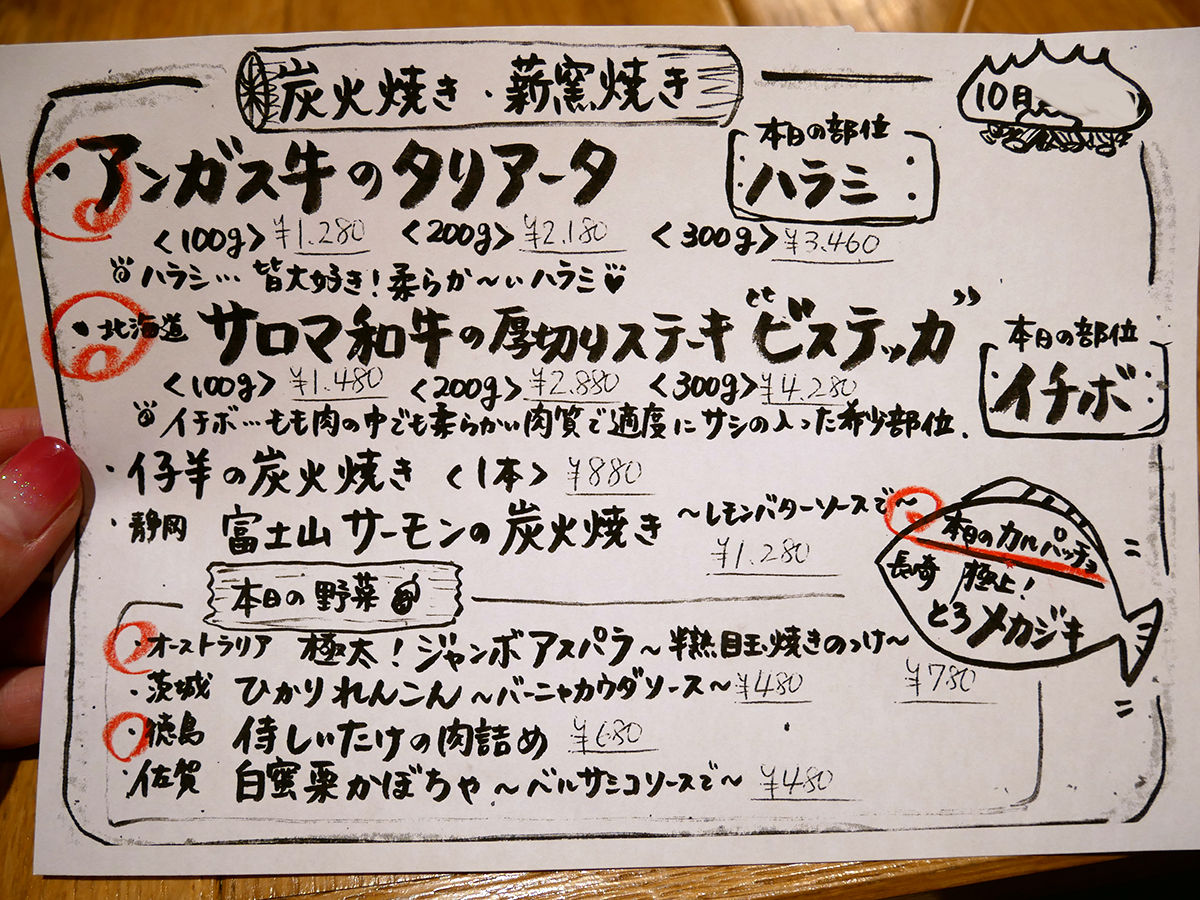 炭火焼き・薪窯焼き
10月
・アンガス牛のタリアータ
本日の部位
ハラミ
<100g> ¥1.280 <200g> ¥2.180 <300g> ¥3.460
ハラミ… 皆大好き!柔らか～いハラミ♥
・北海道 サロマ和牛の厚切りステーキ“ビステッカ”
本日の部位
イチボ
<100g> ¥1.480 <200g> ¥2.880 <300g> ¥4.280
イチボ…もも肉の中でも柔らかい肉質で適度にサシの入った希少部位.
・仔羊の炭火焼き <1本> ¥880
・静岡 富士山サーモンの炭火焼き ～レモンバターソースで～
¥1.280
本日のカルパッチョ
長崎 極上!
とろメカジキ
本日の野菜
・オーストラリア 極太!ジャンボアスパラ～半熟目玉焼きのっけ～
¥780
・茨城 ひかりれんこん～バーニャカウダソース～ ¥480
・徳島 侍しいたけの肉詰め ¥680
・佐賀 白蜜栗かぼちゃ～バルサミコソースで～ ¥480